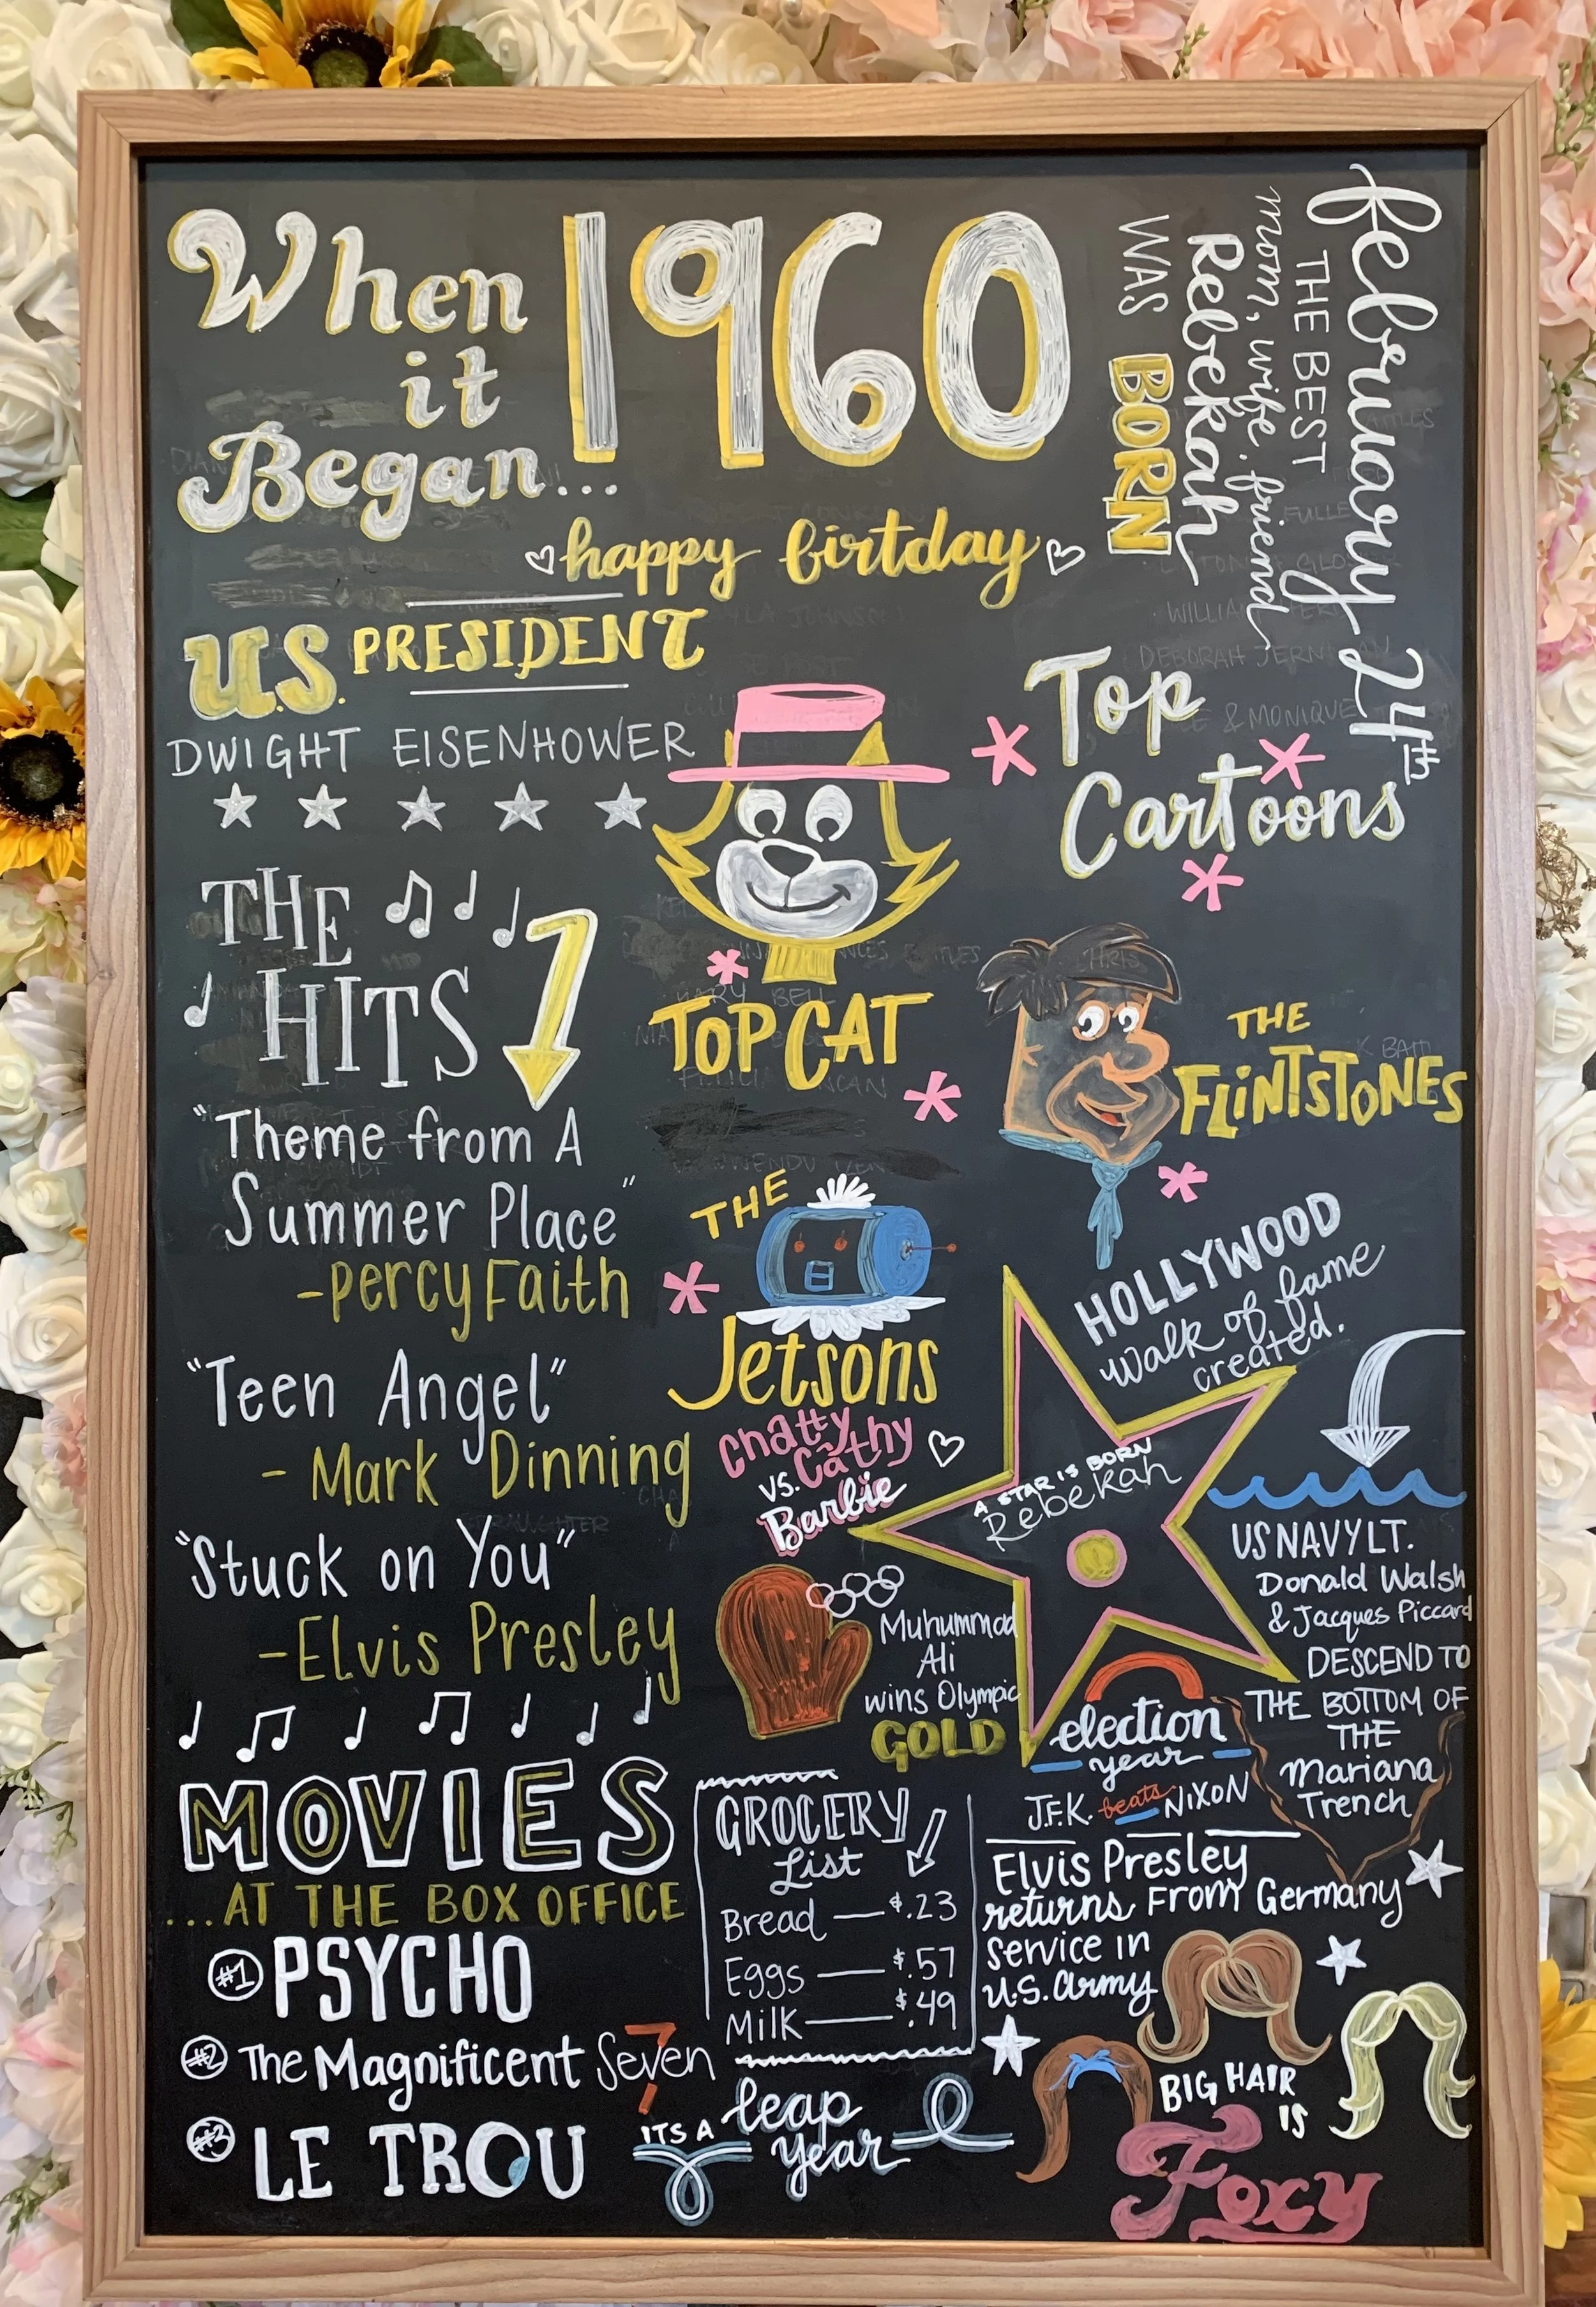 When
it
Began...
1960
happy birtday
February 24th
THE BEST
mom, wife, friend
Rebekah
WAS BORN
U.S. PRESIDENT
DWIGHT EISENHOWER
THE
HITS
"Theme from A
Summer Place"
-Percy Faith
"Teen Angel"
- Mark Dinning
"Stuck on You"
-Elvis Presley
MOVIES
...AT THE BOX OFFICE
#1 PSYCHO
#2 The Magnificent Seven
7
#3 LE TROU
Top
Cartoons
TOP CAT
THE
FLINTSTONES
THE
Jetsons
Chatty
Cathy
vs.
Barbie
HOLLYWOOD
Walk of fame
created.
A STAR IS BORN
Rebekah
Muhummad
Ali
wins Olympic
GOLD
US NAVY LT.
Donald Walsh
& Jacques Piccard
DESCEND TO
THE BOTTOM OF
THE
Mariana
Trench
election
year
J.F.K. beats NIXON
GROCERY
List
Bread — $.23
Eggs — $.57
Milk — $.49
Elvis Presley
returns From Germany
service in
U.S. Army
ITS A leap
year
BIG HAIR
IS
Foxy